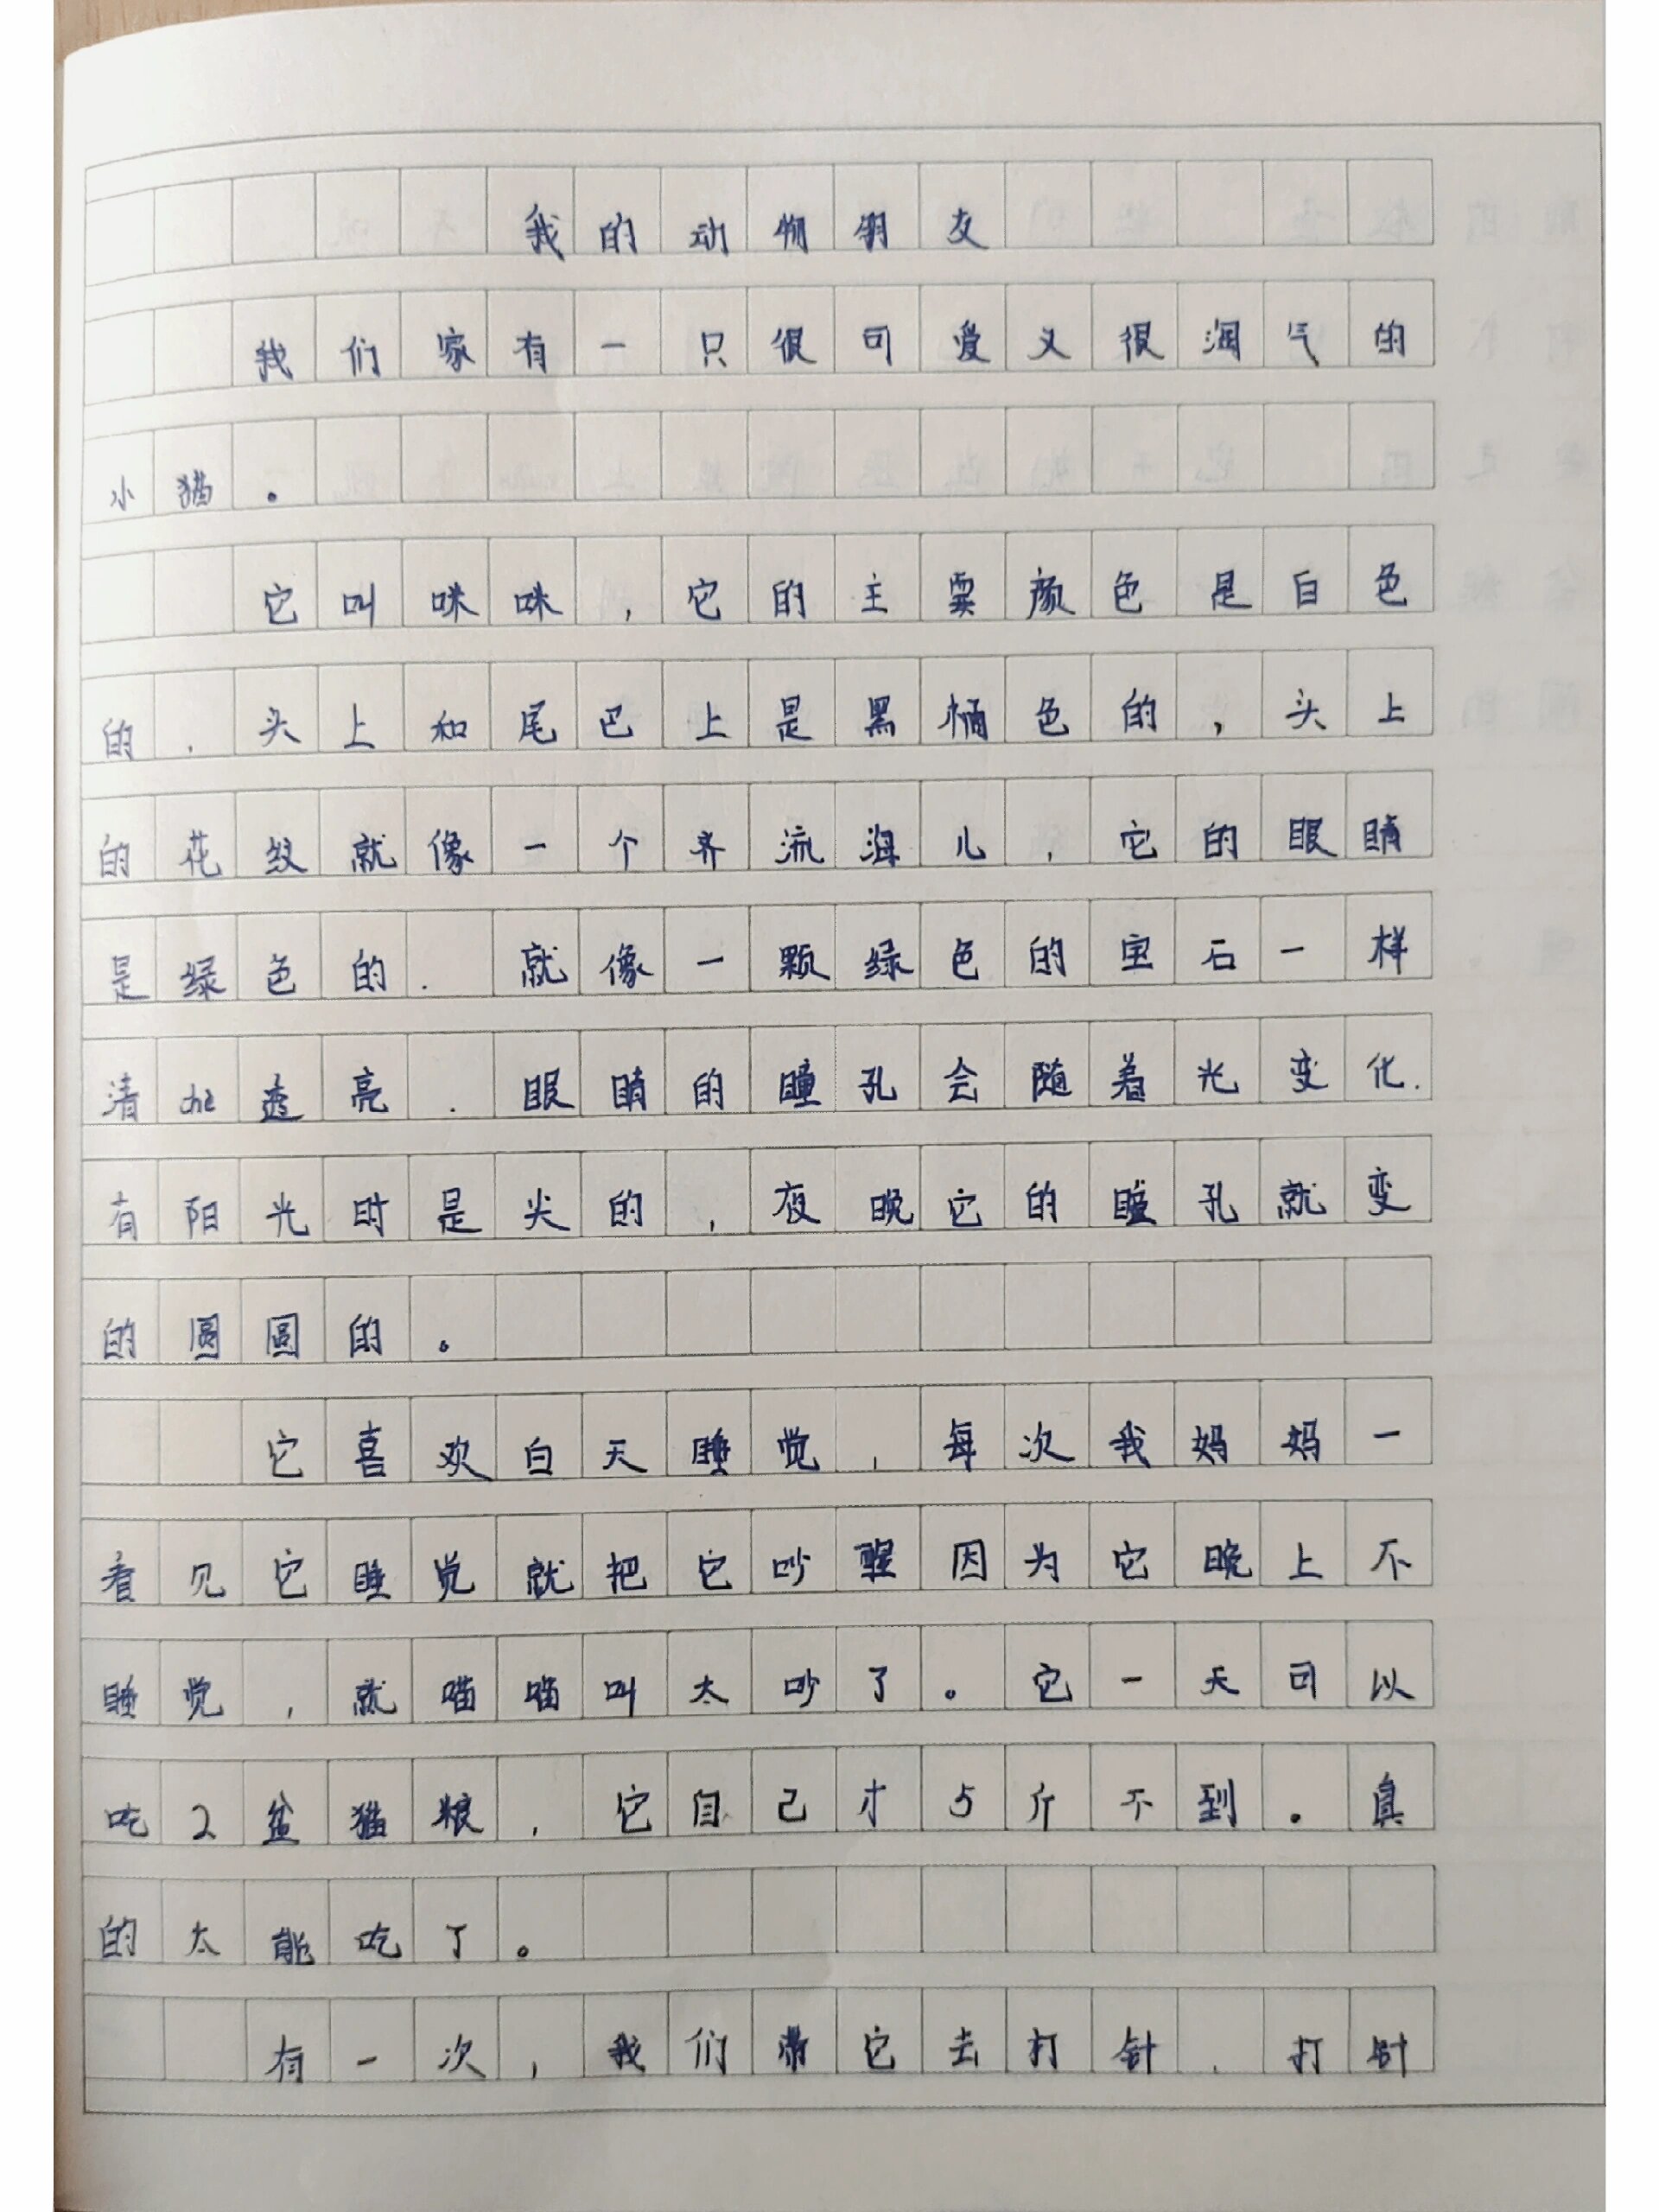 我的动物朋友
我们家有一只很可爱又很润气的
小猫。
它叫咪咪,它的主要颜色是白色
的,头上和尾巴上是黑橘色的,头上
的花纹就像一个齐流海儿,它的眼睛
是绿色的.就像一颗绿色的宝石一样
清che透亮.眼睛的瞳孔会随着光变化.
有阳光时是尖的,夜晚它的瞳孔就变
的圆圆的。
它喜欢白天睡觉,每次我妈妈一
看见它睡觉就把它吵醒因为它晚上不
睡觉,就喵喵叫太吵了。它一天可以
吃2盆猫粮,它自己才5斤不到。真
的太能吃了。
有一次,我们带它去打针.打针